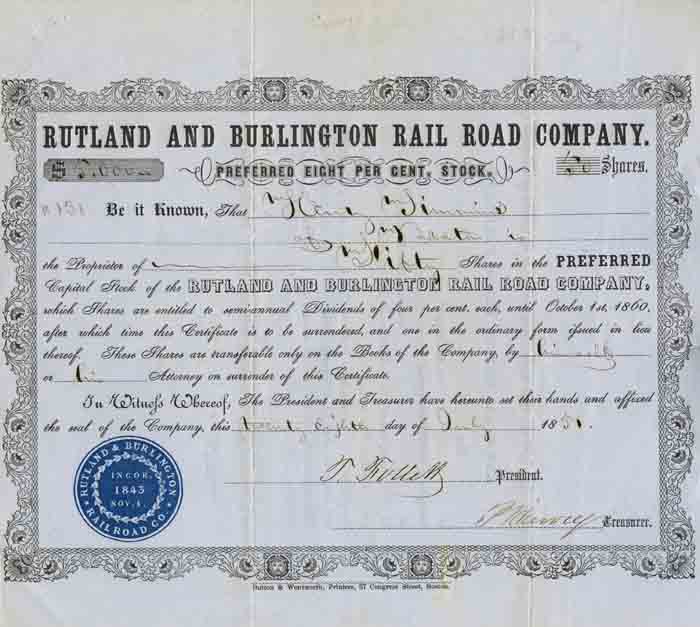 RUTLAND AND BURLINGTON RAIL ROAD COMPANY.
$ 5.000
PREFERRED EIGHT PER CENT. STOCK.
50 Shares.
No 151 Be it Known, That Henry Timmins
of
the Proprietor of Fifty Shares in the PREFERRED
Capital Stock of the RUTLAND AND BURLINGTON RAIL ROAD COMPANY,
which Shares are entitled to semi-annual Dividends of four per cent. each, until October 1st, 1860,
after which time this Certificate is to be surrendered, and one in the ordinary form issued in lieu
thereof. These Shares are transferable only on the Books of the Company, by himself
or his Attorney on surrender of this Certificate.
In Witness Whereof, The President and Treasurer have hereunto set their hands and affixed
the seal of the Company, this twenty eighth day of July 1851.
RUTLAND & BURLINGTON
INCOR.
1843
NOV. 1.
RAILROAD CO.
T. Follett President.
Treasurer.
Dutton & Wentworth, Printers, 37 Congress Street, Boston.